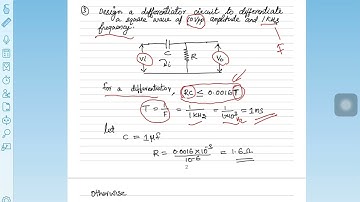 ③ Design a differentiator circuit to differentiate
a square wave of 10Vpp amplitude and 1KHz
frequency.
F
C
Vi
Ri
R
Vo
for a differentiator, RC ≤ 0.0016T
T = 1/F = 1/1KHz = 1/1×10³ = 1ms
let
C = 1μf
R = 0.0016×10⁻³/10⁻⁶ = 1.6Ω
otherwise